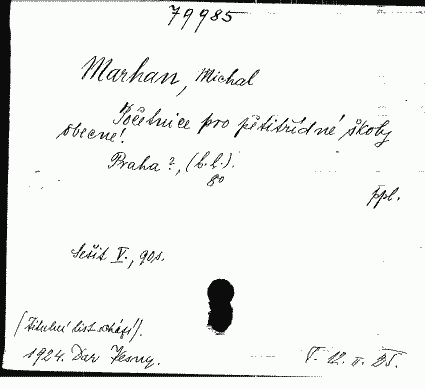 79985
Marhan, Michal
Početnice pro pětitřídné školy
obecné!
Praha ?, (b.l.).
8°
ppl.
Sešit V., 90 s.
(Titulní list schází).
1924. Dar Vesny.
T. 12. II. 25.